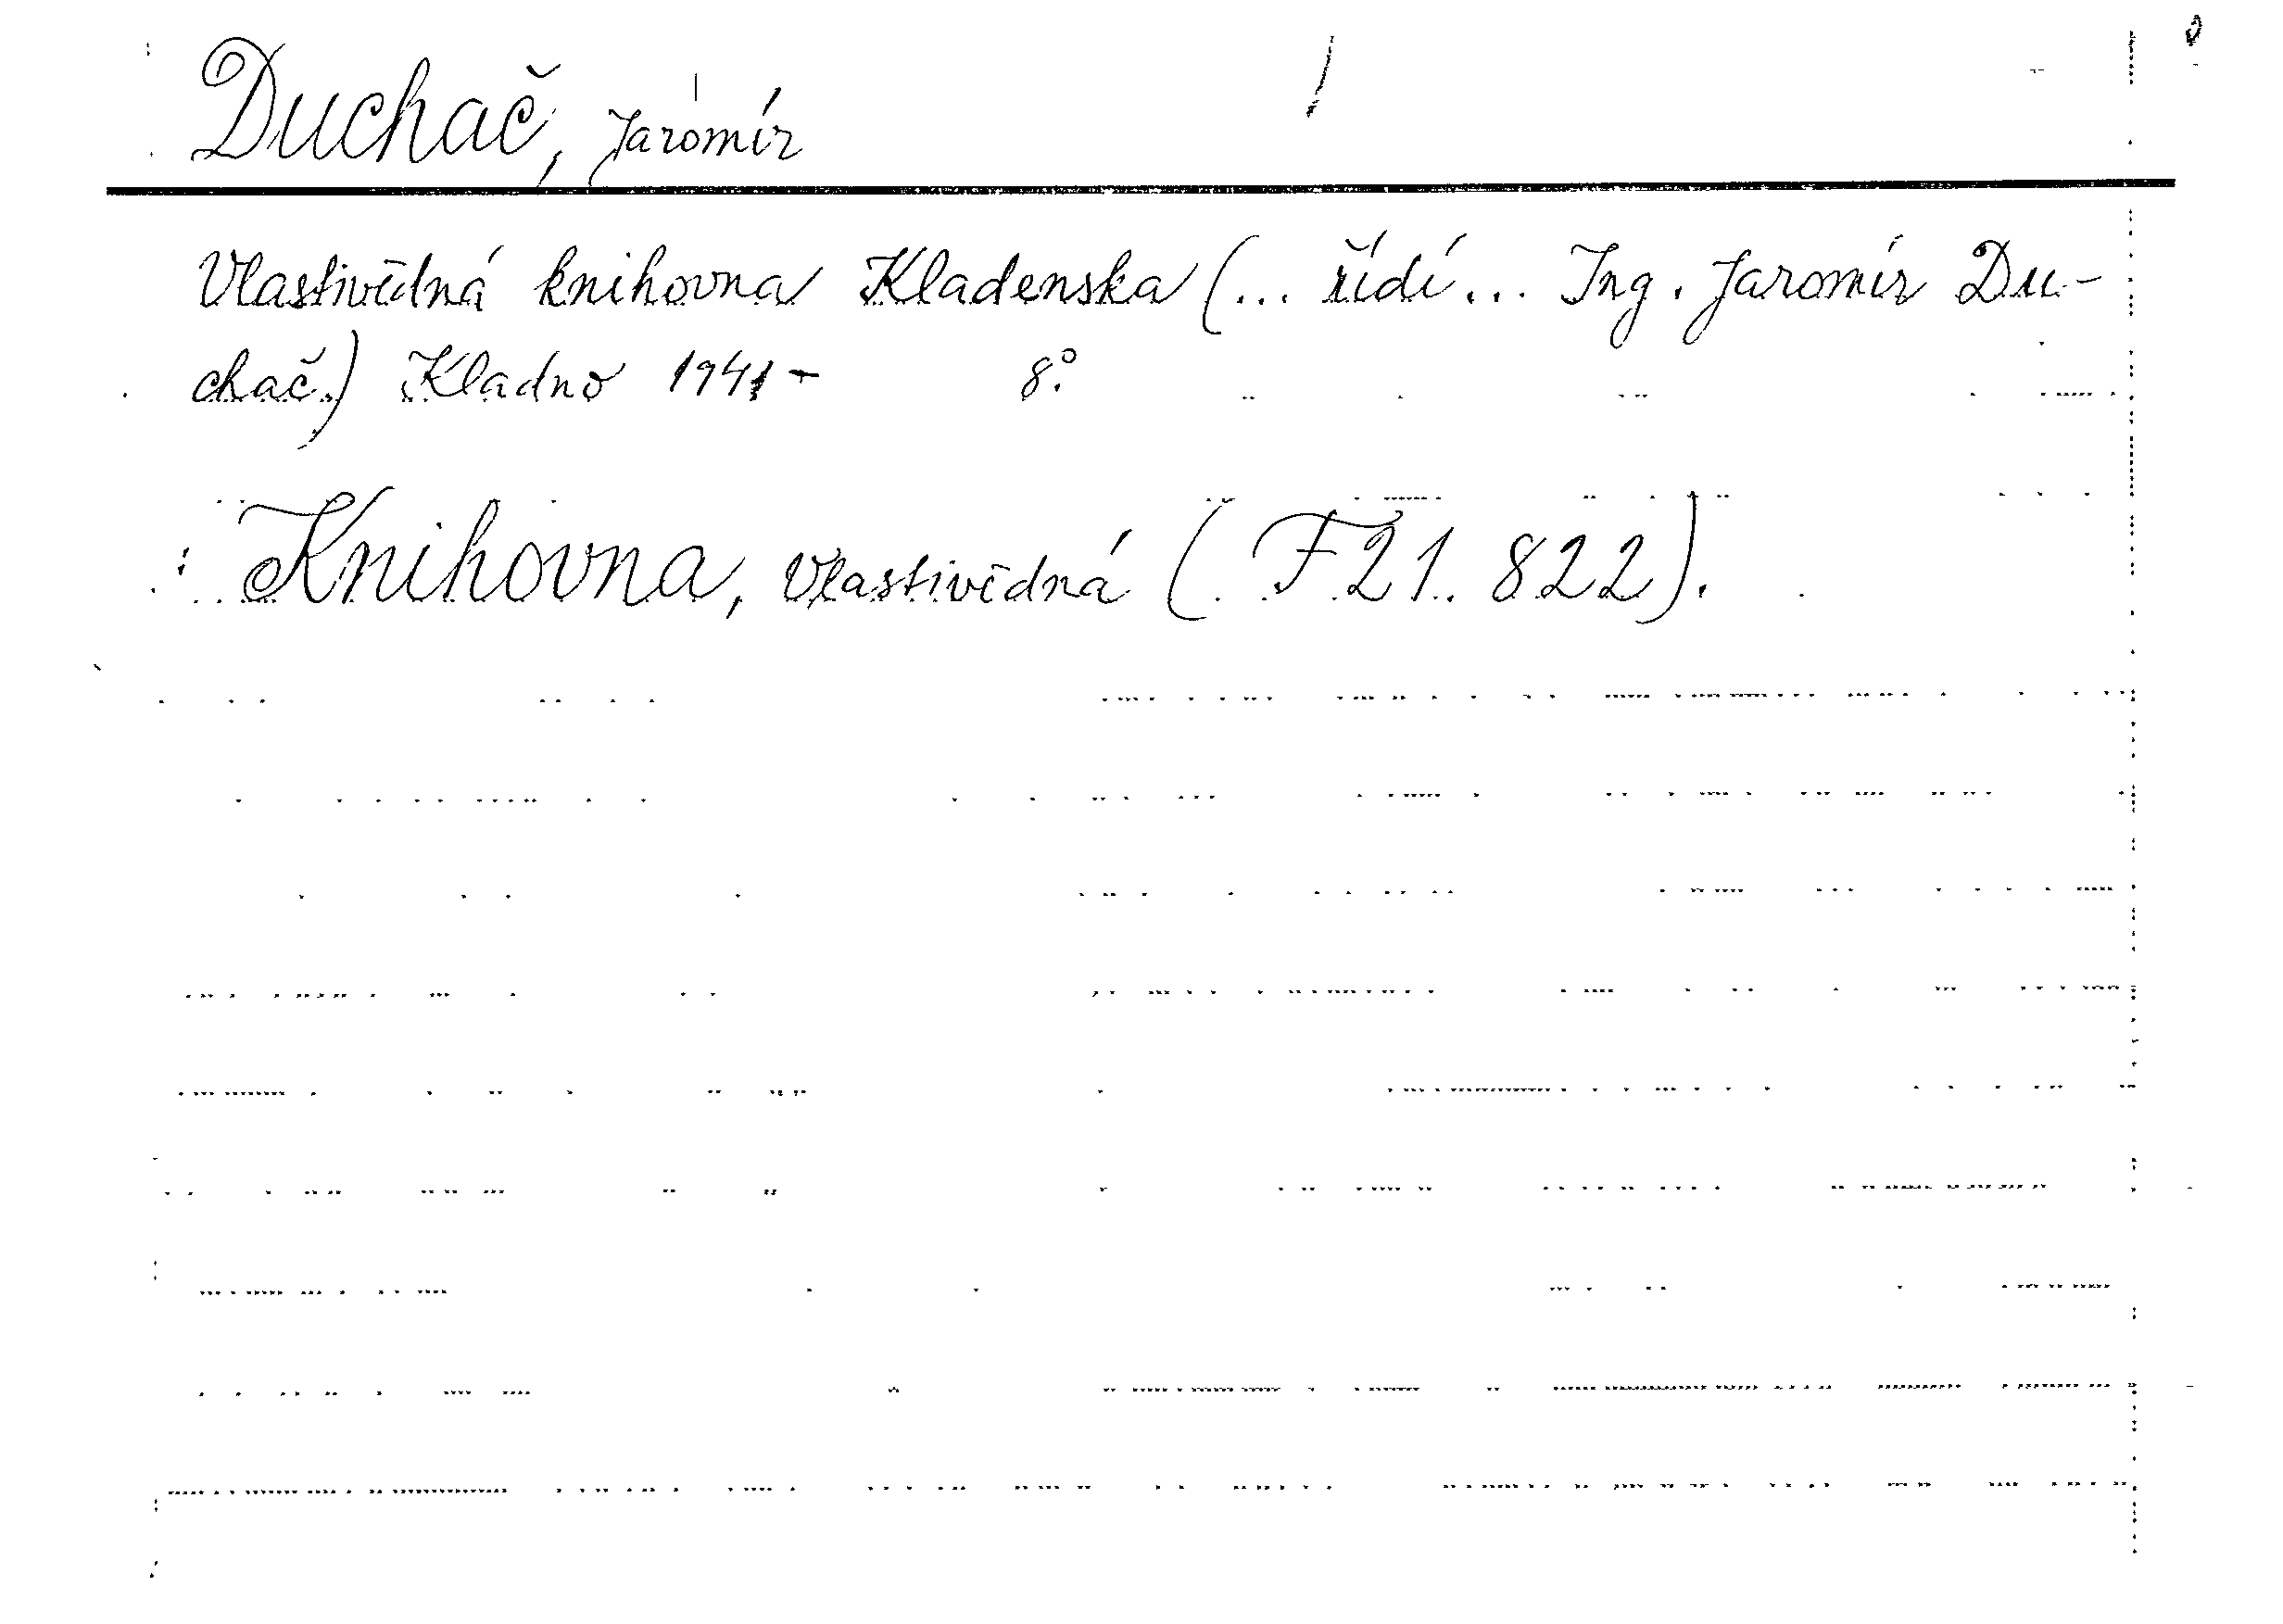 Duchač, Jaromír
Vlastivědná knihovna Kladenska (... řídí... Ing. Jaromír Du-
chač.) Kladno 1941- 8°.
Knihovna, Vlastivědná (F 21. 822).